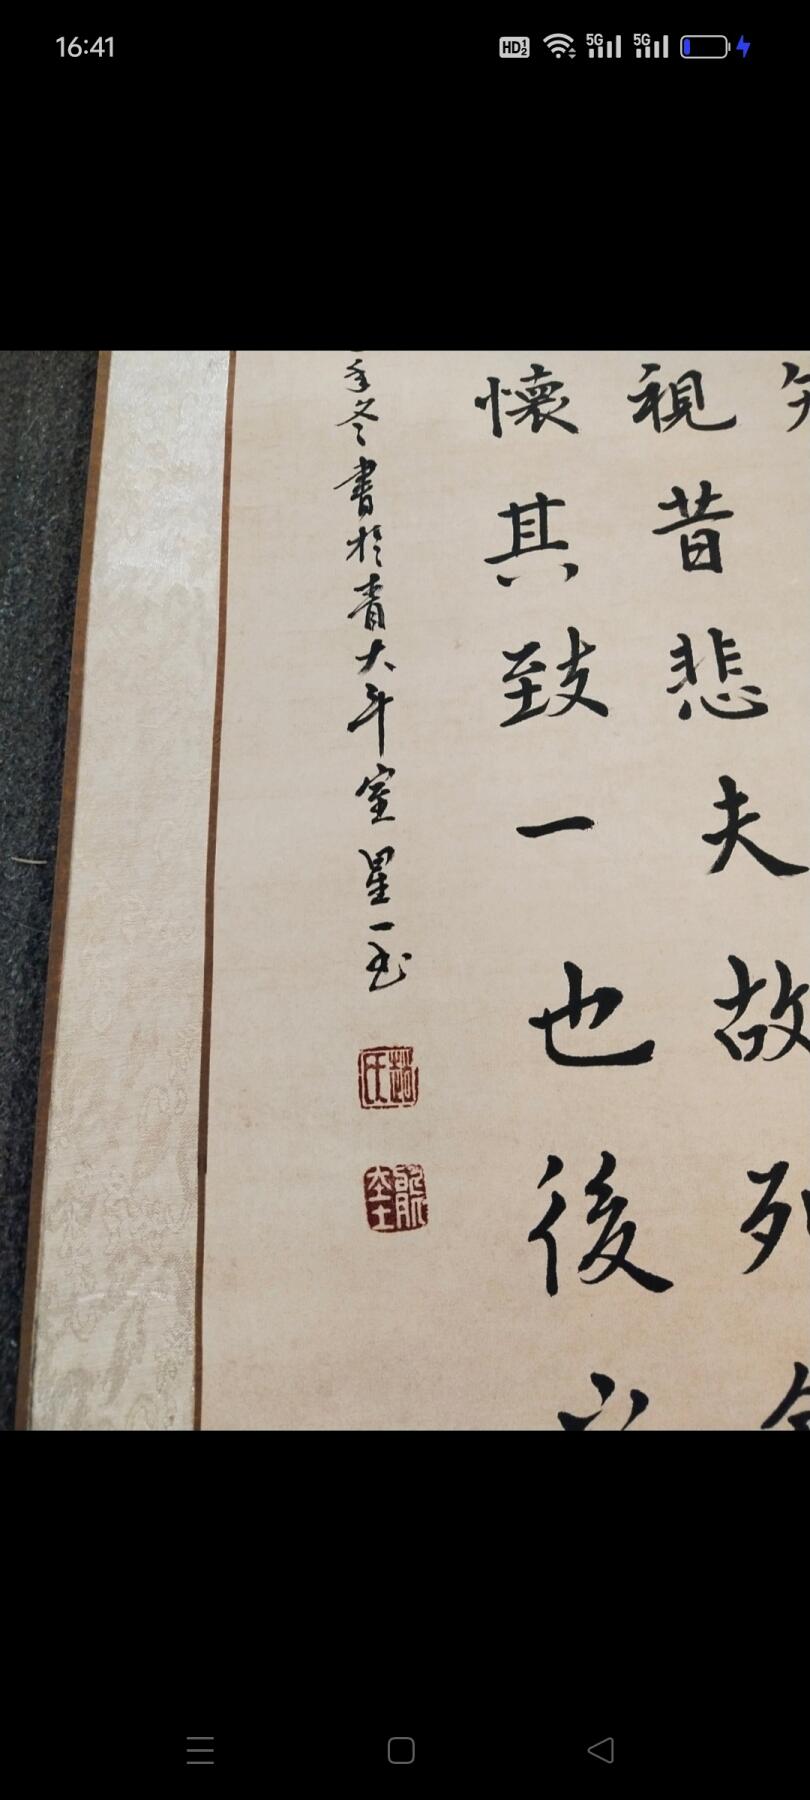 16:41
HD 1 2
5G
5G
視昔悲夫故列
懷其致一也後
年冬書於青大年室星一
趙氏